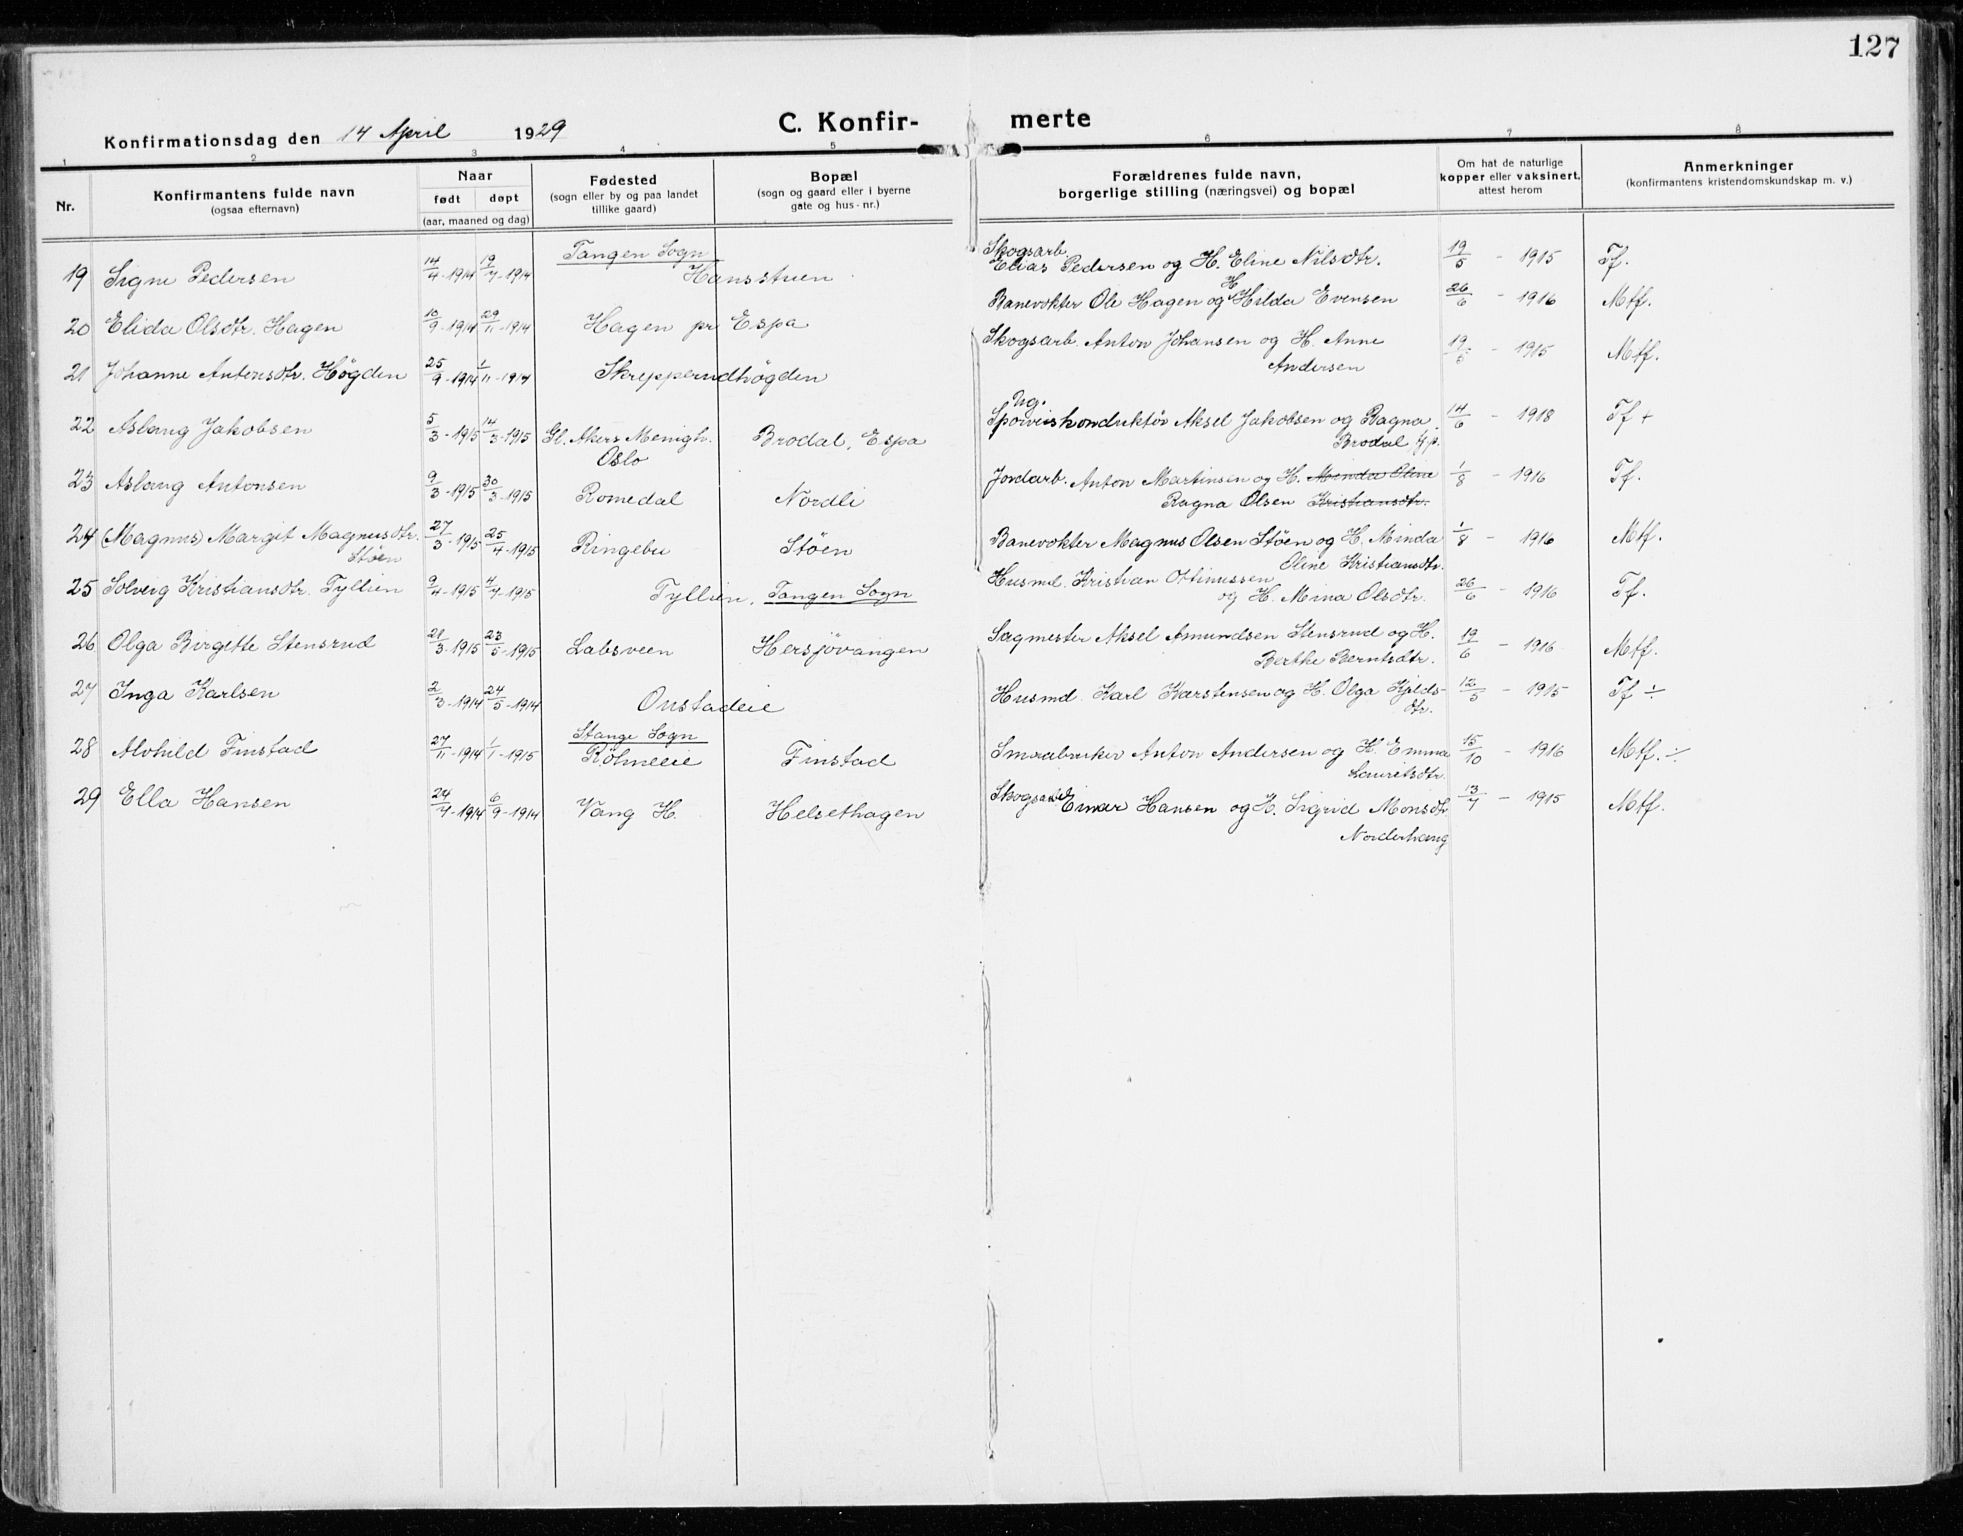 127
Konfirmationsdag den 14 April 1929 C. Konfir- merte
1 2 3 4 5 6 7 8
Nr.
Konfirmantens fulde navn
(ogsaa efternavn)
Naar
født døpt
(aar, maaned og dag)
Fødested
(sogn eller by og paa landet
tillike gaard)
Bopæl
(sogn og gaard eller i byerne
gate og hus-nr.)
Forældrenes fulde navn,
borgerlige stilling (næringsvei) og bopæl
Om hat de naturlige
kopper eller vaksinert,
attest herom
Anmerkninger
(konfirmantens kristendomskundskap m. v.)
Tangen Sogn
19 Signe Pedersen 14/4-1914 19/7-1914 Hansstuen Skogsarb. Elias Pedersen og H. Eline Nilsdtr. 19/5 - 1915 Tf.
20 Elida Olsdtr. Hagen 10/9-1914 29/11-1914 Hagen pr Espa Banevokter Ole Hagen og H. Hilda Evensen 26/6 - 1916 Mtf.
21 Johanne Antonsdtr. Høgden 25/9-1914 1/11-1914 Skrepperudhøgden Skogsarb. Anton Johansen og H. Anne
Andersen 19/5 - 1915 Mtf.
22 Aslaug Jakobsen 5/3-1915 14/3-1915 Gl. Akers Menigh.
Oslo Brodal, Espa Ug.
Sporveiskonduktør Aksel Jakobsen og Ragna
Brodal 14/6 - 1918 Tf +
23 Aslaug Antonsen 9/3-1915 30/3-1915 Romedal Nordli Jordarb. Anton Martinsen og H. Minda Oline
Ragna Olsen Kristiansdtr. 1/8 - 1916 Tf.
24 (Magnus) Margit Magnusdtr.
Støen 27/3-1915 25/4-1915 Ringebu Støen Banevokter Magnus Olsen Støen og H. Minda
Oline Kristiansdtr. 1/8 - 1916 Mtf.
25 Solveig Kristiansdtr. Tyllien 9/4-1915 4/7-1915 Tyllien, Tangen Sogn Husmd. Kristian Ottinussen
og H. Mina Olsdtr. 26/6 - 1916 Tf.
26 Olga Birgitte Stensrud 21/3-1915 23/5-1915 Labsveen Hersjøvangen Sagmester Aksel Amundsen Stensrud og H.
Berthe Berntsdtr. 19/6 - 1916 Mtf.
27 Inga Karlsen 2/3-1914 24/5-1914 Onstadeie Husmd. Karl Karstensen og H. Olga Kjelds-
dtr. 12/5 - 1915 Tf ÷
Stange Sogn
28 Alvhild Finstad 27/11-1914 1/1-1915 Røhneeie Finstad Smaabruker Anton Andersen og H. Emma
Lauritsdtr. 15/10 - 1916 Mtf. ÷
29 Ella Hansen 24/7-1914 6/9-1914 Vang H. Helsethagen Skogsarb. Einar Hansen og H. Sigrid Monsdtr.
Norderhaug 13/7 - 1915 Mtf.